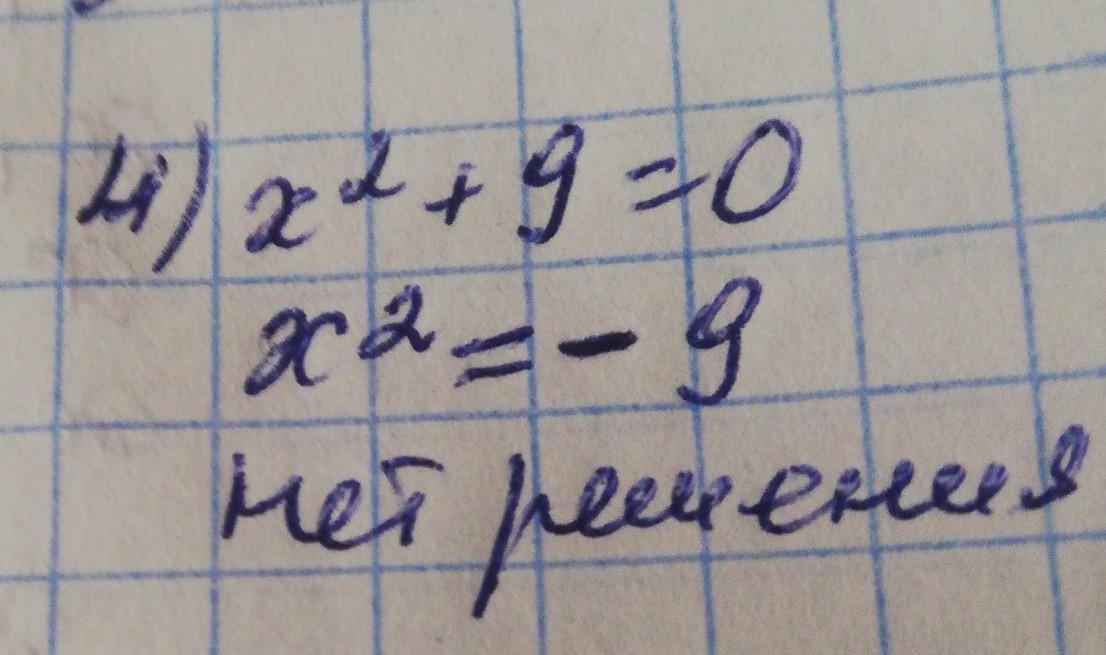 4) x² + 9 = 0
x² = - 9
нет решения